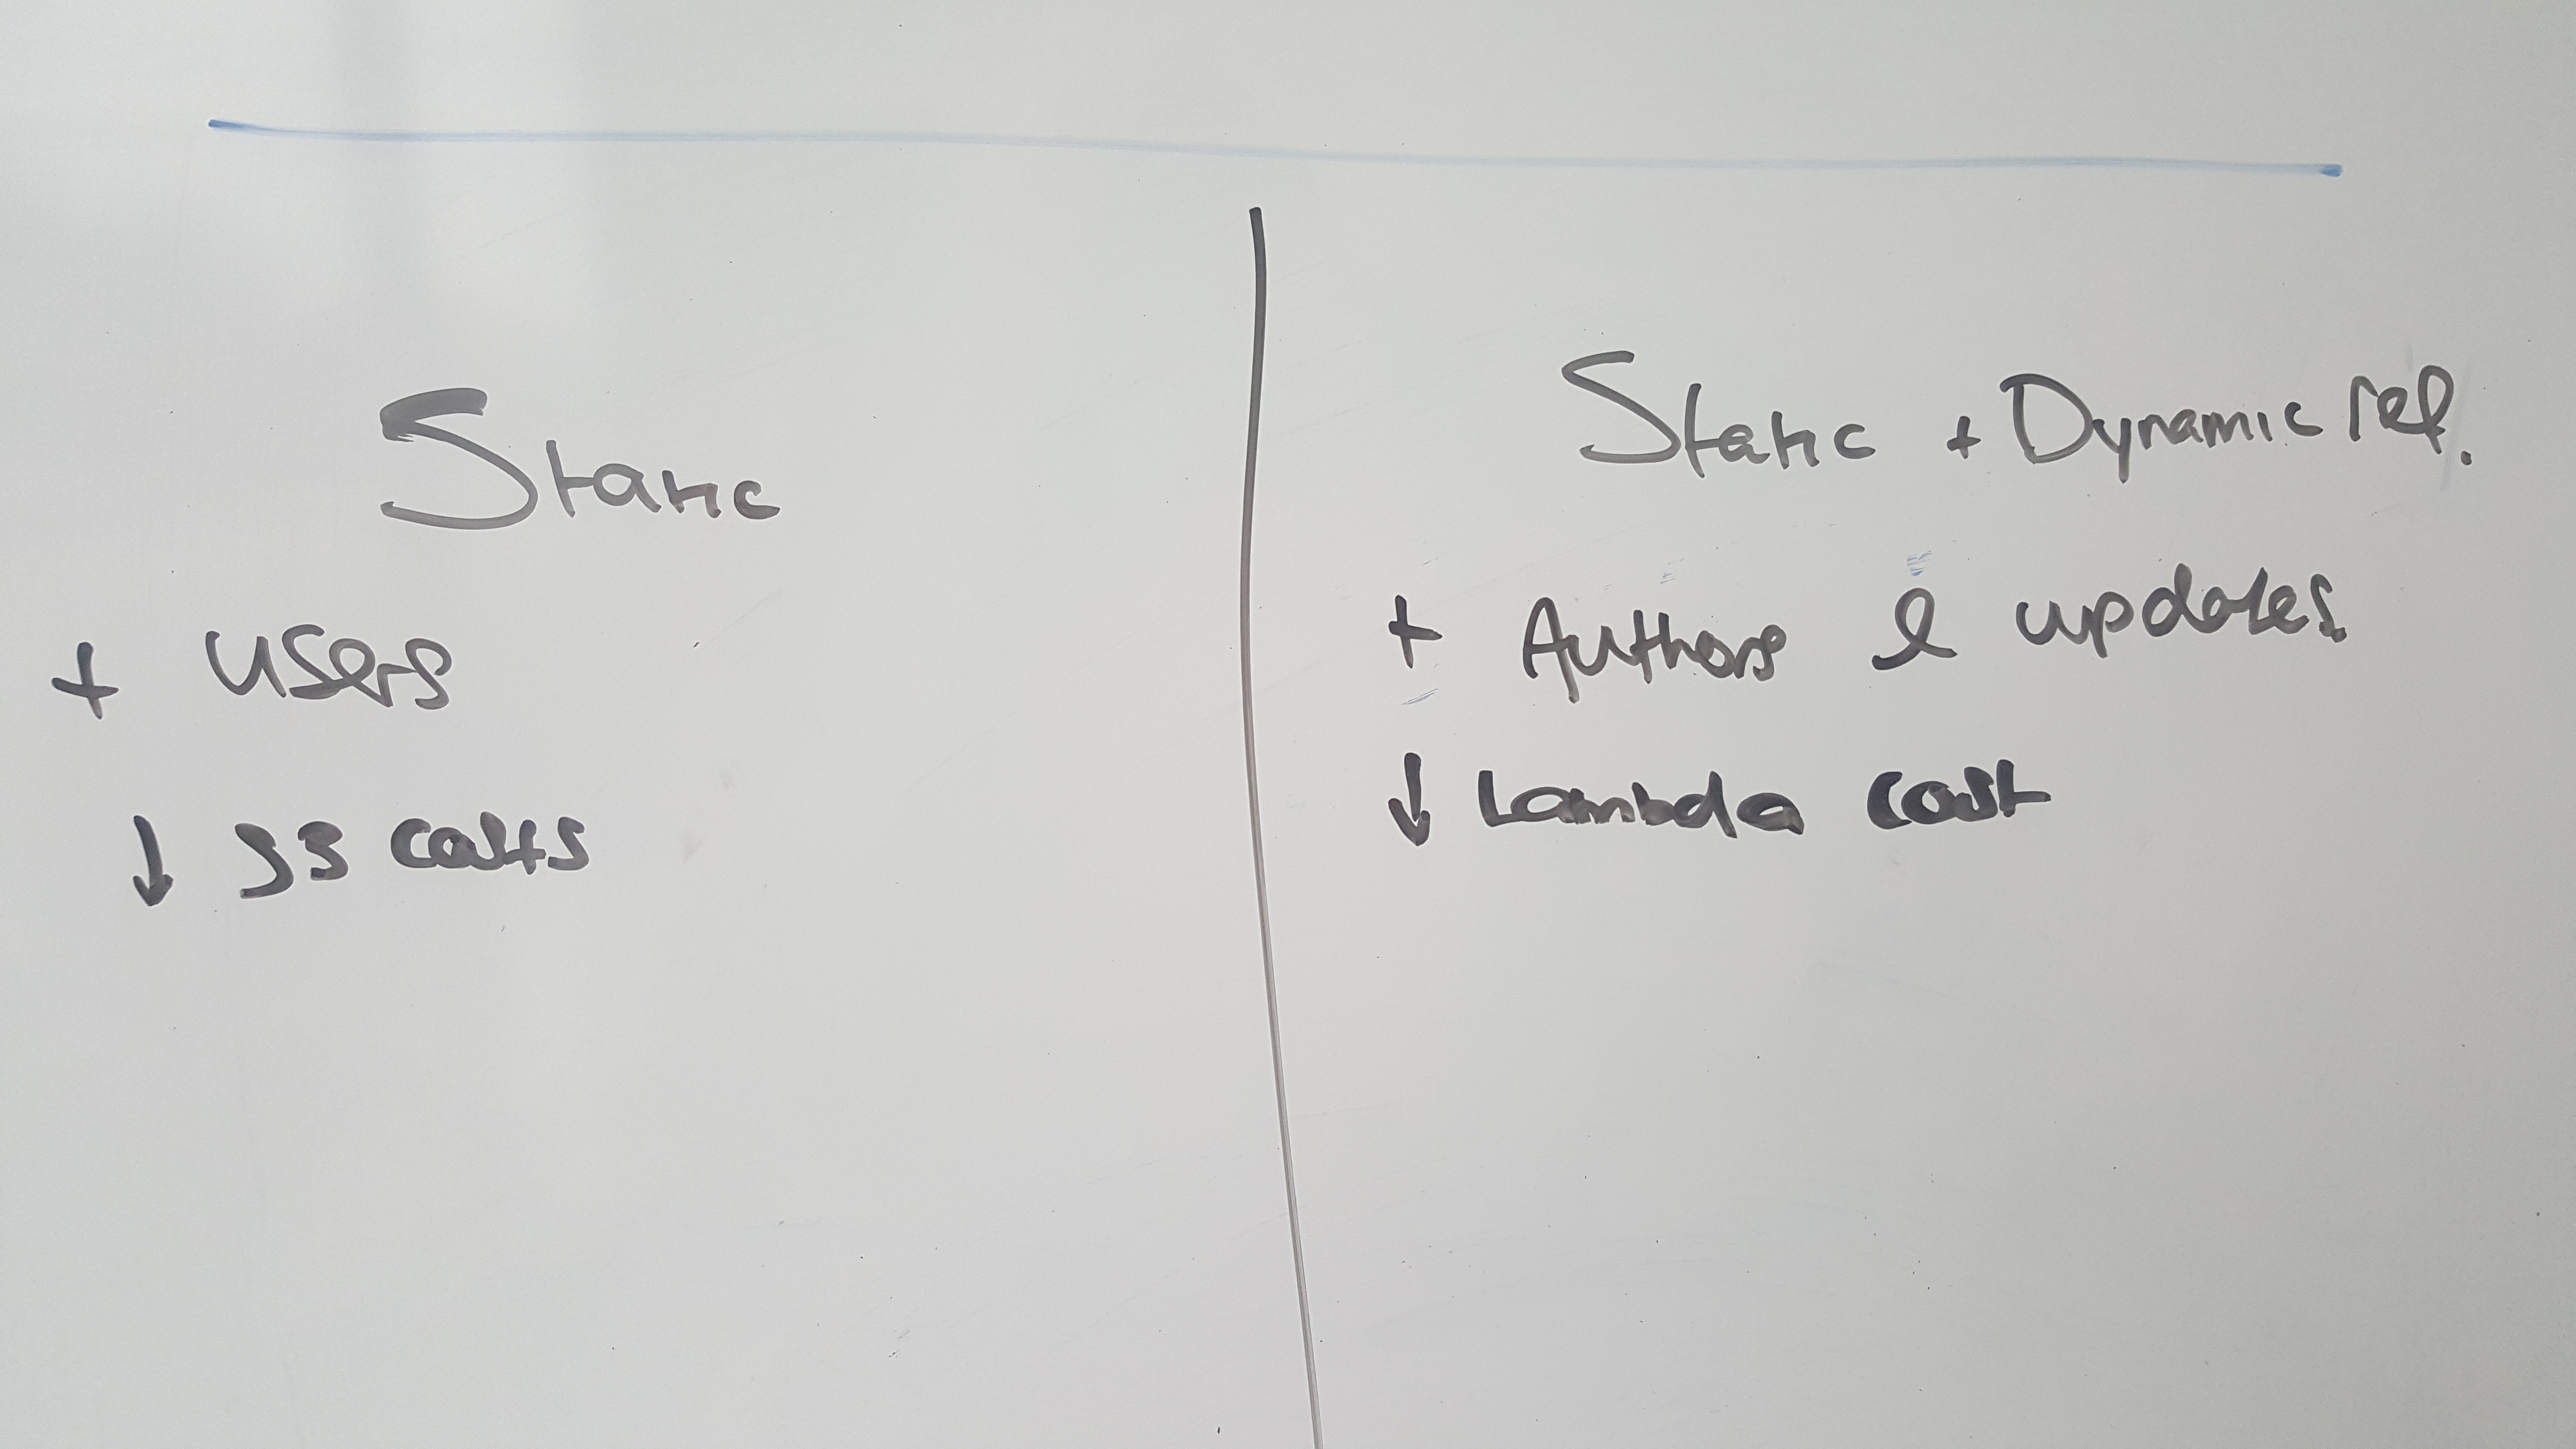 Static
+ users
↓ S3 costs
Static + Dynamic ref.
+ Authors & updates.
↓ Lambda cost